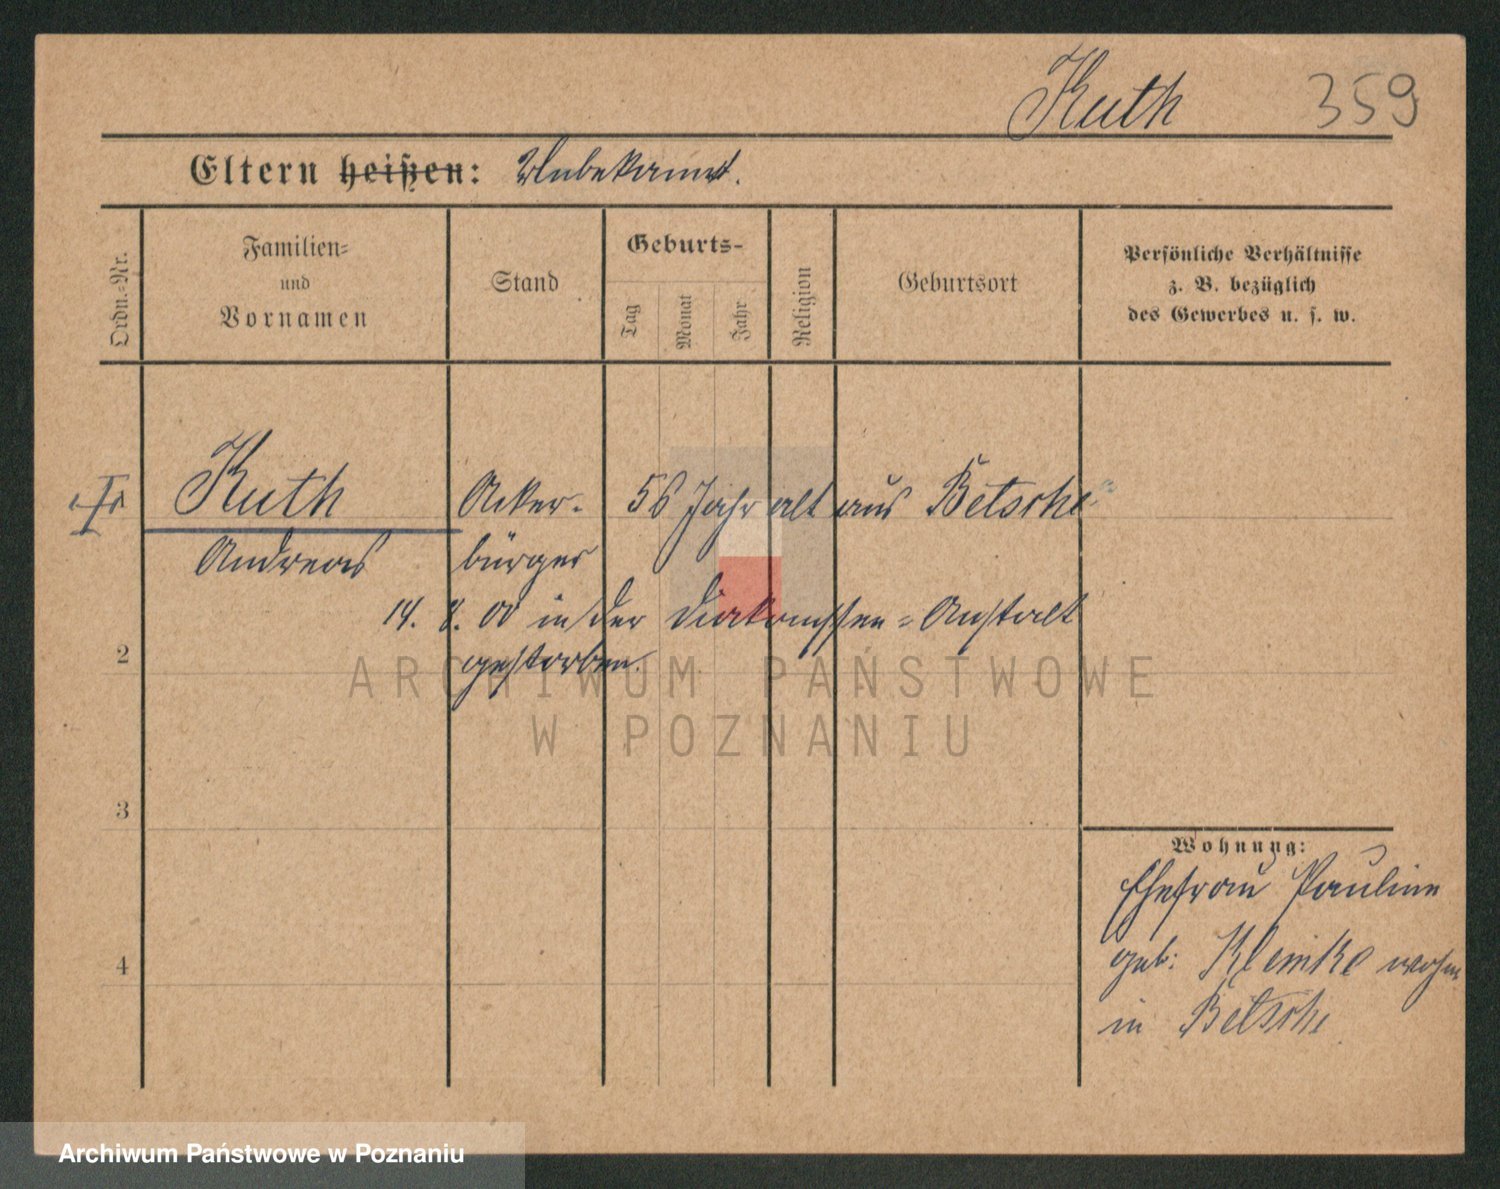 Kuth 359
Eltern heißen: Unbekannt.
Ordn.-Nr.
Familien-
und
Vornamen
Stand
Geburts-
Tag
Monat
Jahr
Religion
Geburtsort
Persönliche Verhältnisse
z. B. bezüglich
des Gewerbes u. s. w.
Kuth Acker- 56 Jahr alt aus Betsche
Andreas bürger
14. 8. 00 in der Diakonissen-Anstalt
2 gestorben.
3
4
Wohnung:
Ehefrau Pauline
geb: Klemke wohn
in Betsche
ARCHIWUM PAŃSTWOWE
W POZNANIU
Archiwum Państwowe w Poznaniu